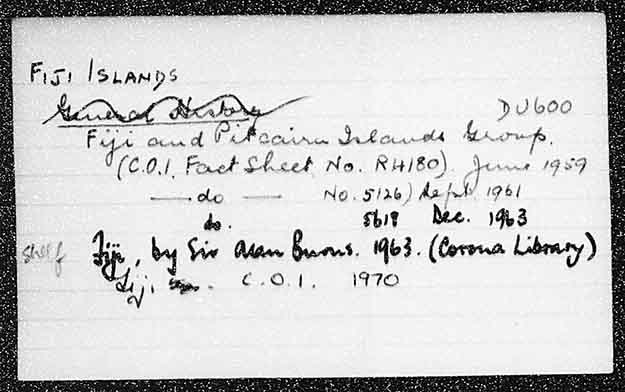 FIJI ISLANDS
General History
DU600
Fiji and Pitcairn Islands Group.
(C.O.I. Fact Sheet No. RH180). June 1959
— do — No. 5126) Sept. 1961
do. 5618 Dec. 1963
Shelf Fiji, by Sir Alan Burns. 1963. (Corona Library)
Fiji C.O.I. 1970